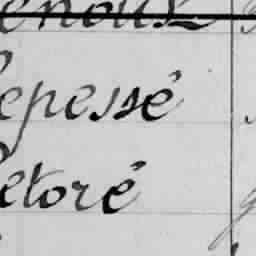 enoux
epessé
etoré